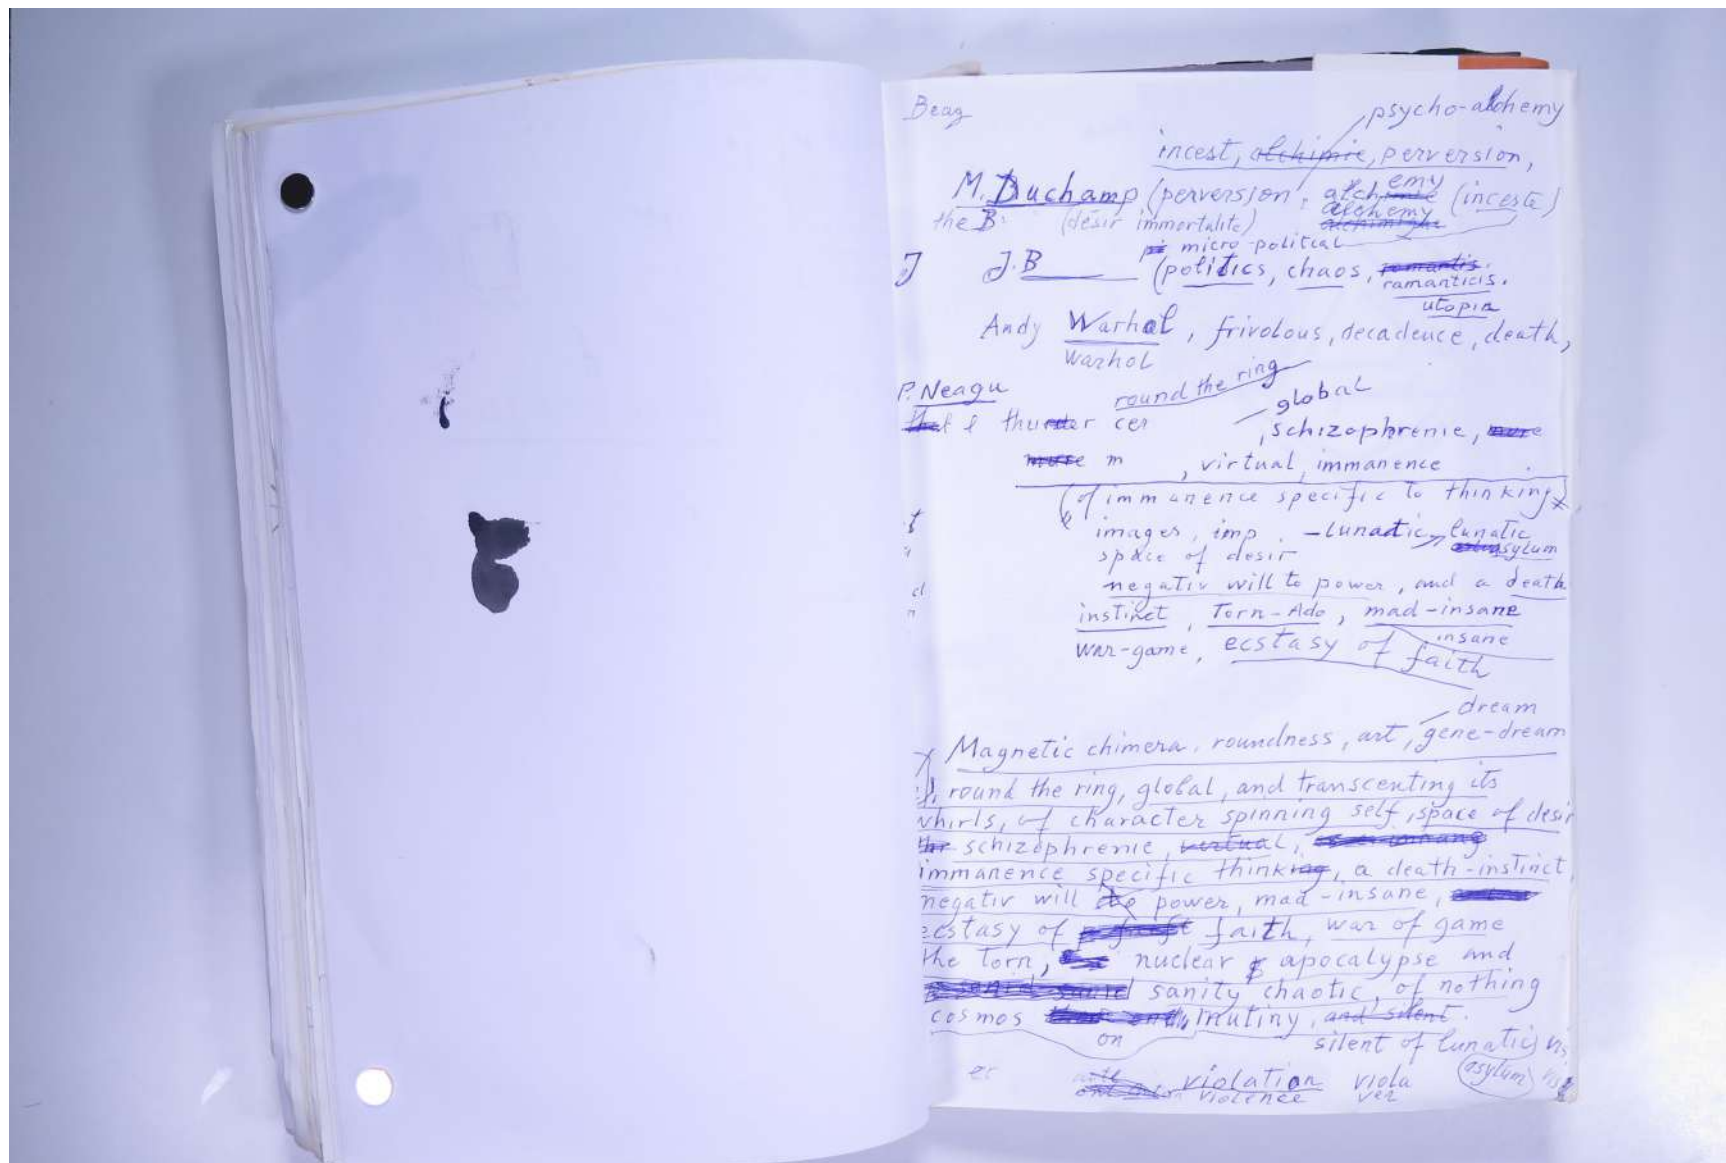 Beag
psycho-alchemy
incest, alchimie, perversion,
M. Duchamp (perversion, alchemy (inceste)
the B: (désir immortalité) alchemy
micro-politcal
J J.B (politics, chaos, romantis.
ramanticis.
utopia
Andy Warhol, frivolous, decadence, death,
Warhol
P. Neagu round the ring
global
that & thunder cer , schizophrenie, more
more m , virtual, immanence
(of immanence specific to thinking x
images, imp. - lunatic, lunatic
space of desir asylum
negativ will to power, and a death
instinct, Torn-Ado, mad-insane
war-game, ecstasy of insane
faith
dream
x Magnetic chimera, roundness, art, gene-dream
round the ring, global, and transcenting its
whirls, of character spinning self, space of desir
schizophrenie, virtual,
immanence specific thinking, a death-instinct,
negativ will to power, mad-insane,
ecstasy of faith, war of game
the Torn, nuclear apocalypse and
sanity chaotic, of nothing
cosmos mutiny, and silent.
on silent of lunatic vis
er violation viola asylum vis
violence ver